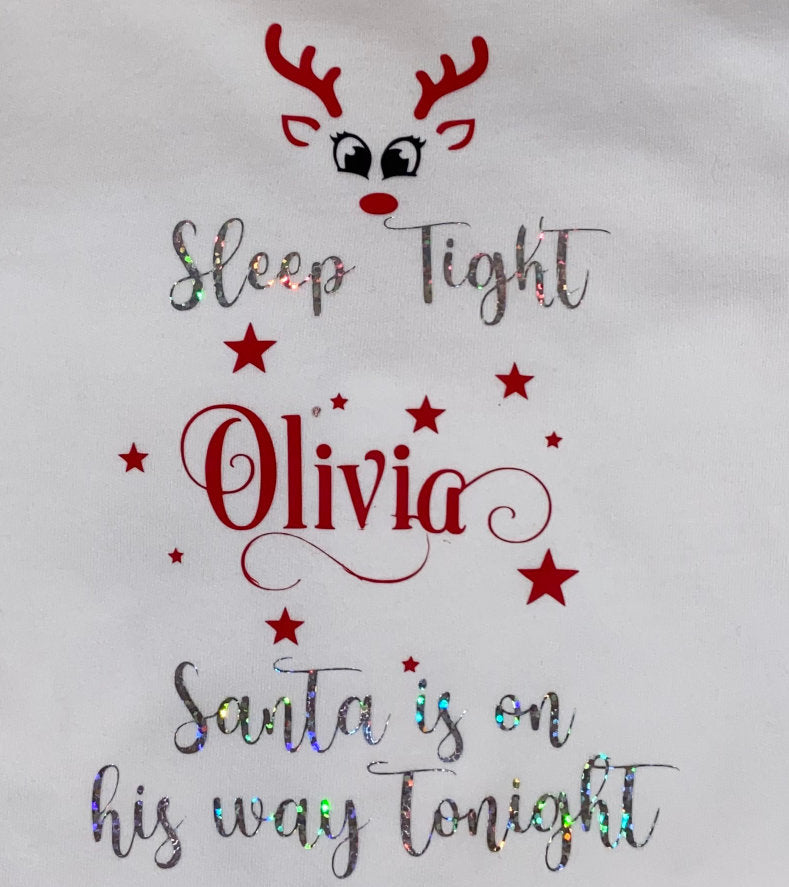 Sleep Tight
Olivia
Santa is on
his way tonight